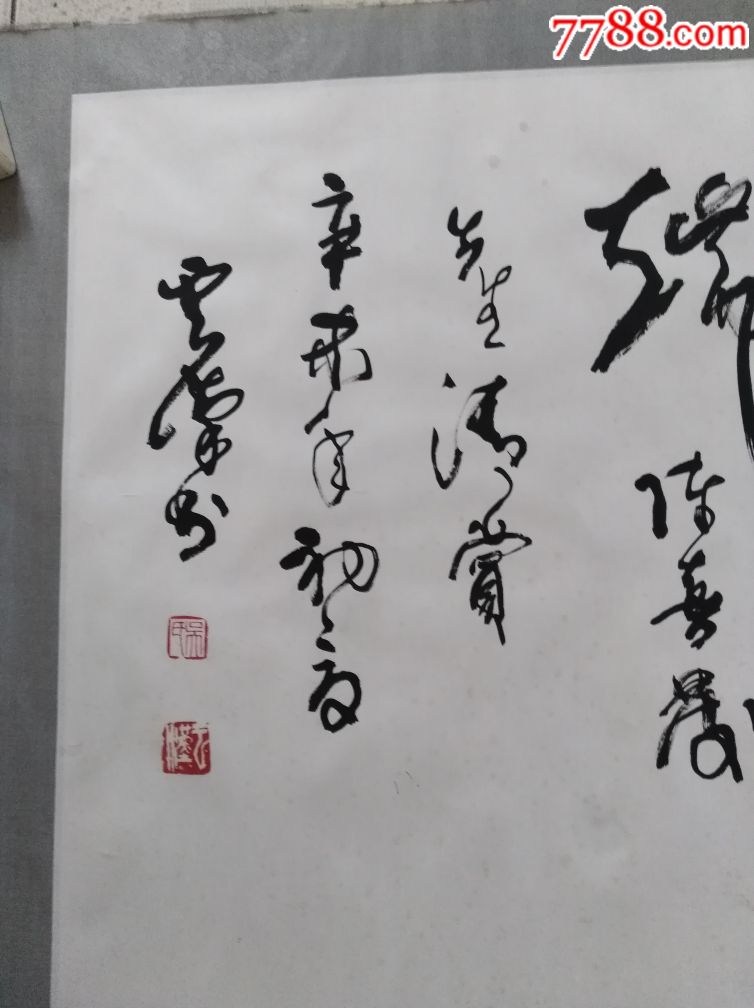 7788.com
瑞
陈喜
先生清赏
辛未年初夏
云
吴氏